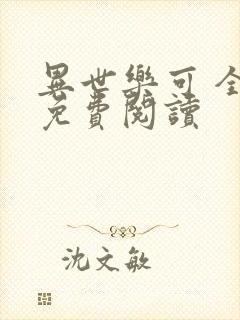 異世樂可全
免費閱讀
沈文敏